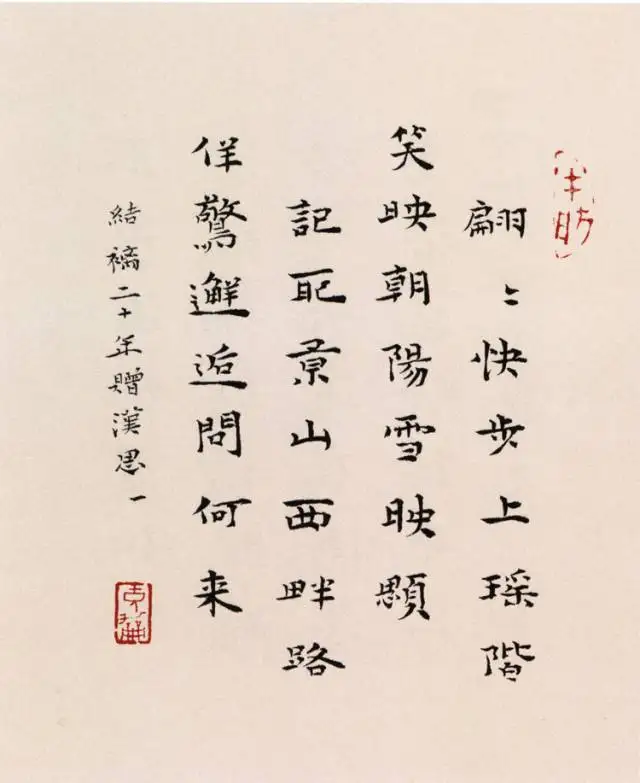 翩〻快步上瑤階
笑映朝陽雪映顋
記取景山西畔路
佯驚邂逅問何来
結褵二十年贈漢思一
充龢